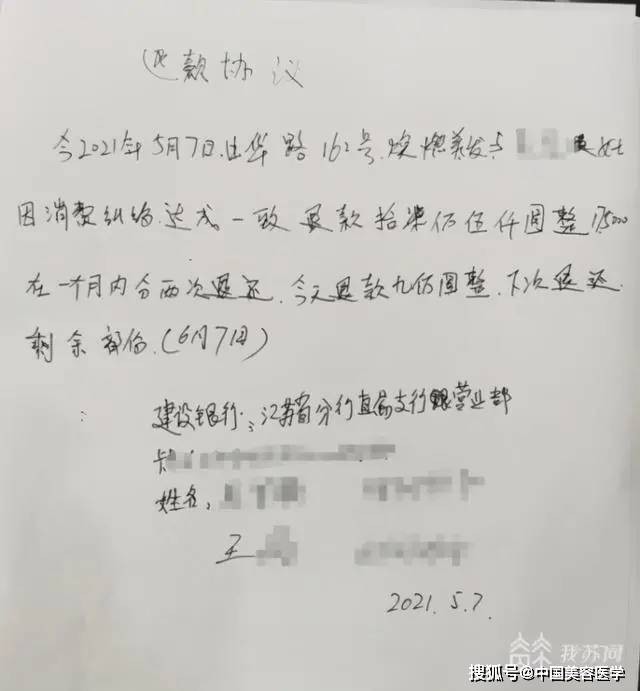 退款协议
今2021年5月7日.华路162号.焕燃美发与 女士
因消费纠纷.达成一致 退款拾柒佰伍仟圆整
在一个月内分两次退还.今天退款九仟圆整.下次退还.
剩余部份.(6月7日)
建设银行:江苏省分行直属支行营业部
卡
姓名:
王
2021.5.7.
我苏网
搜狐号@中国美容医学